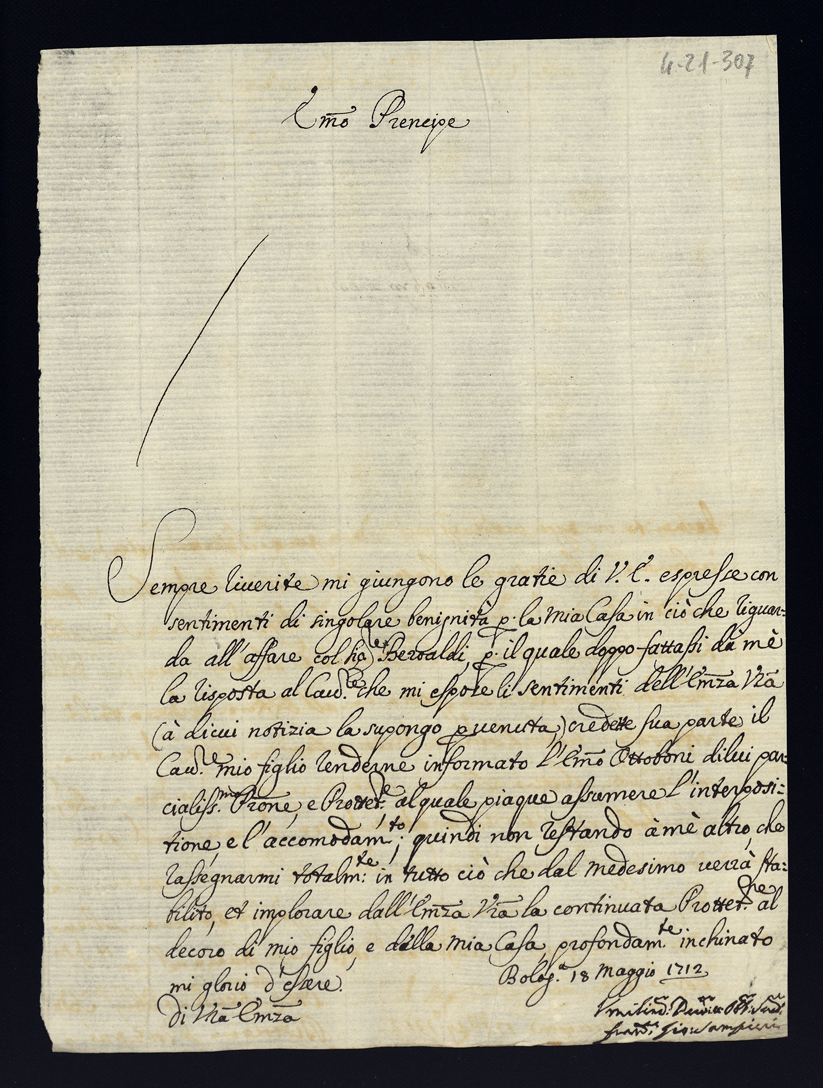 4-21-307
Em̃o Prencipe
Sempre riverite mi giungono le gratie di V. E. espresse con
sentimenti di singolare benignità p. la mia Casa in ciò che riguar-
da all'affare col Beroaldi, p. il quale doppo fattassi da mè
la risposta al Cav.re che mi espose li sentimenti dell'Emz̃a Vr̃a
(à di cui notizia la supongo pvenuta) credette sua parte il
Cav.re mio figlio renderne informato l'Em̃o Ottoboni di lui par-
cialiss.mo Prone, e Prottet.re al quale piaque assumere l'interposi-
tione, e l'accomodam.to; quindi non restando à mè altro che
rassegnarmi totalm.te in tutto ciò che dal medesimo verrà sta-
bilito, et implorare dall'Emz̃a Vr̃a la continuata Prottet.ne al
decoro di mio figlio, e della mia Casa profondam.te inchinato
mi glorio d'essere.
Bolog.a 18 Maggio 1712
Di Vr̃a Emz̃a
Sampieri